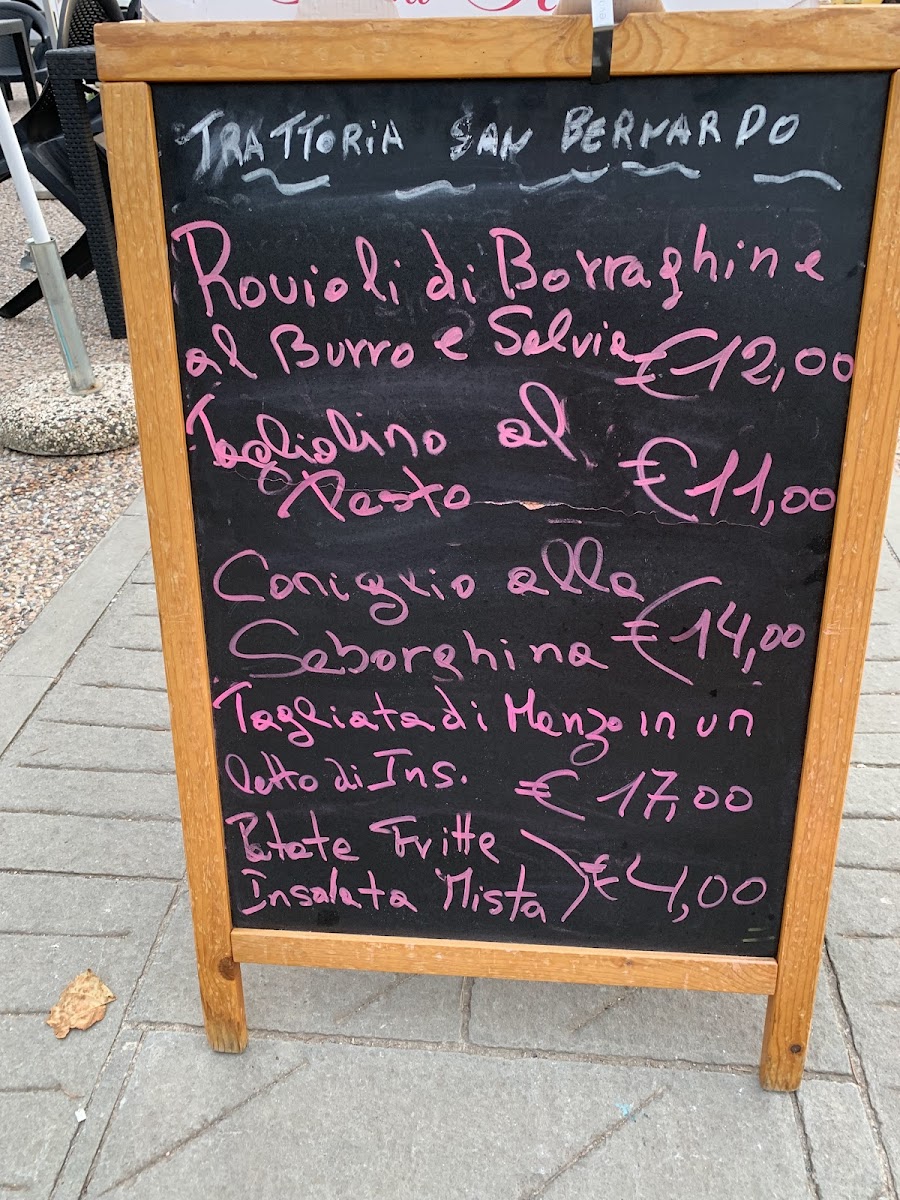 TRATTORIA SAN BERNARDO
Ravioli di Borraghine
al Burro e Salvia €12,00
Tagliolino al
Pesto €11,00
Coniglio alla
Seborghina €14,00
Tagliata di Manzo in un
letto di Ins. € 17,00
Patate Fritte
Insalata Mista € 4,00